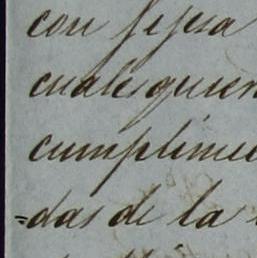 con fijesa
cualesquier
cumplimie
=das de la